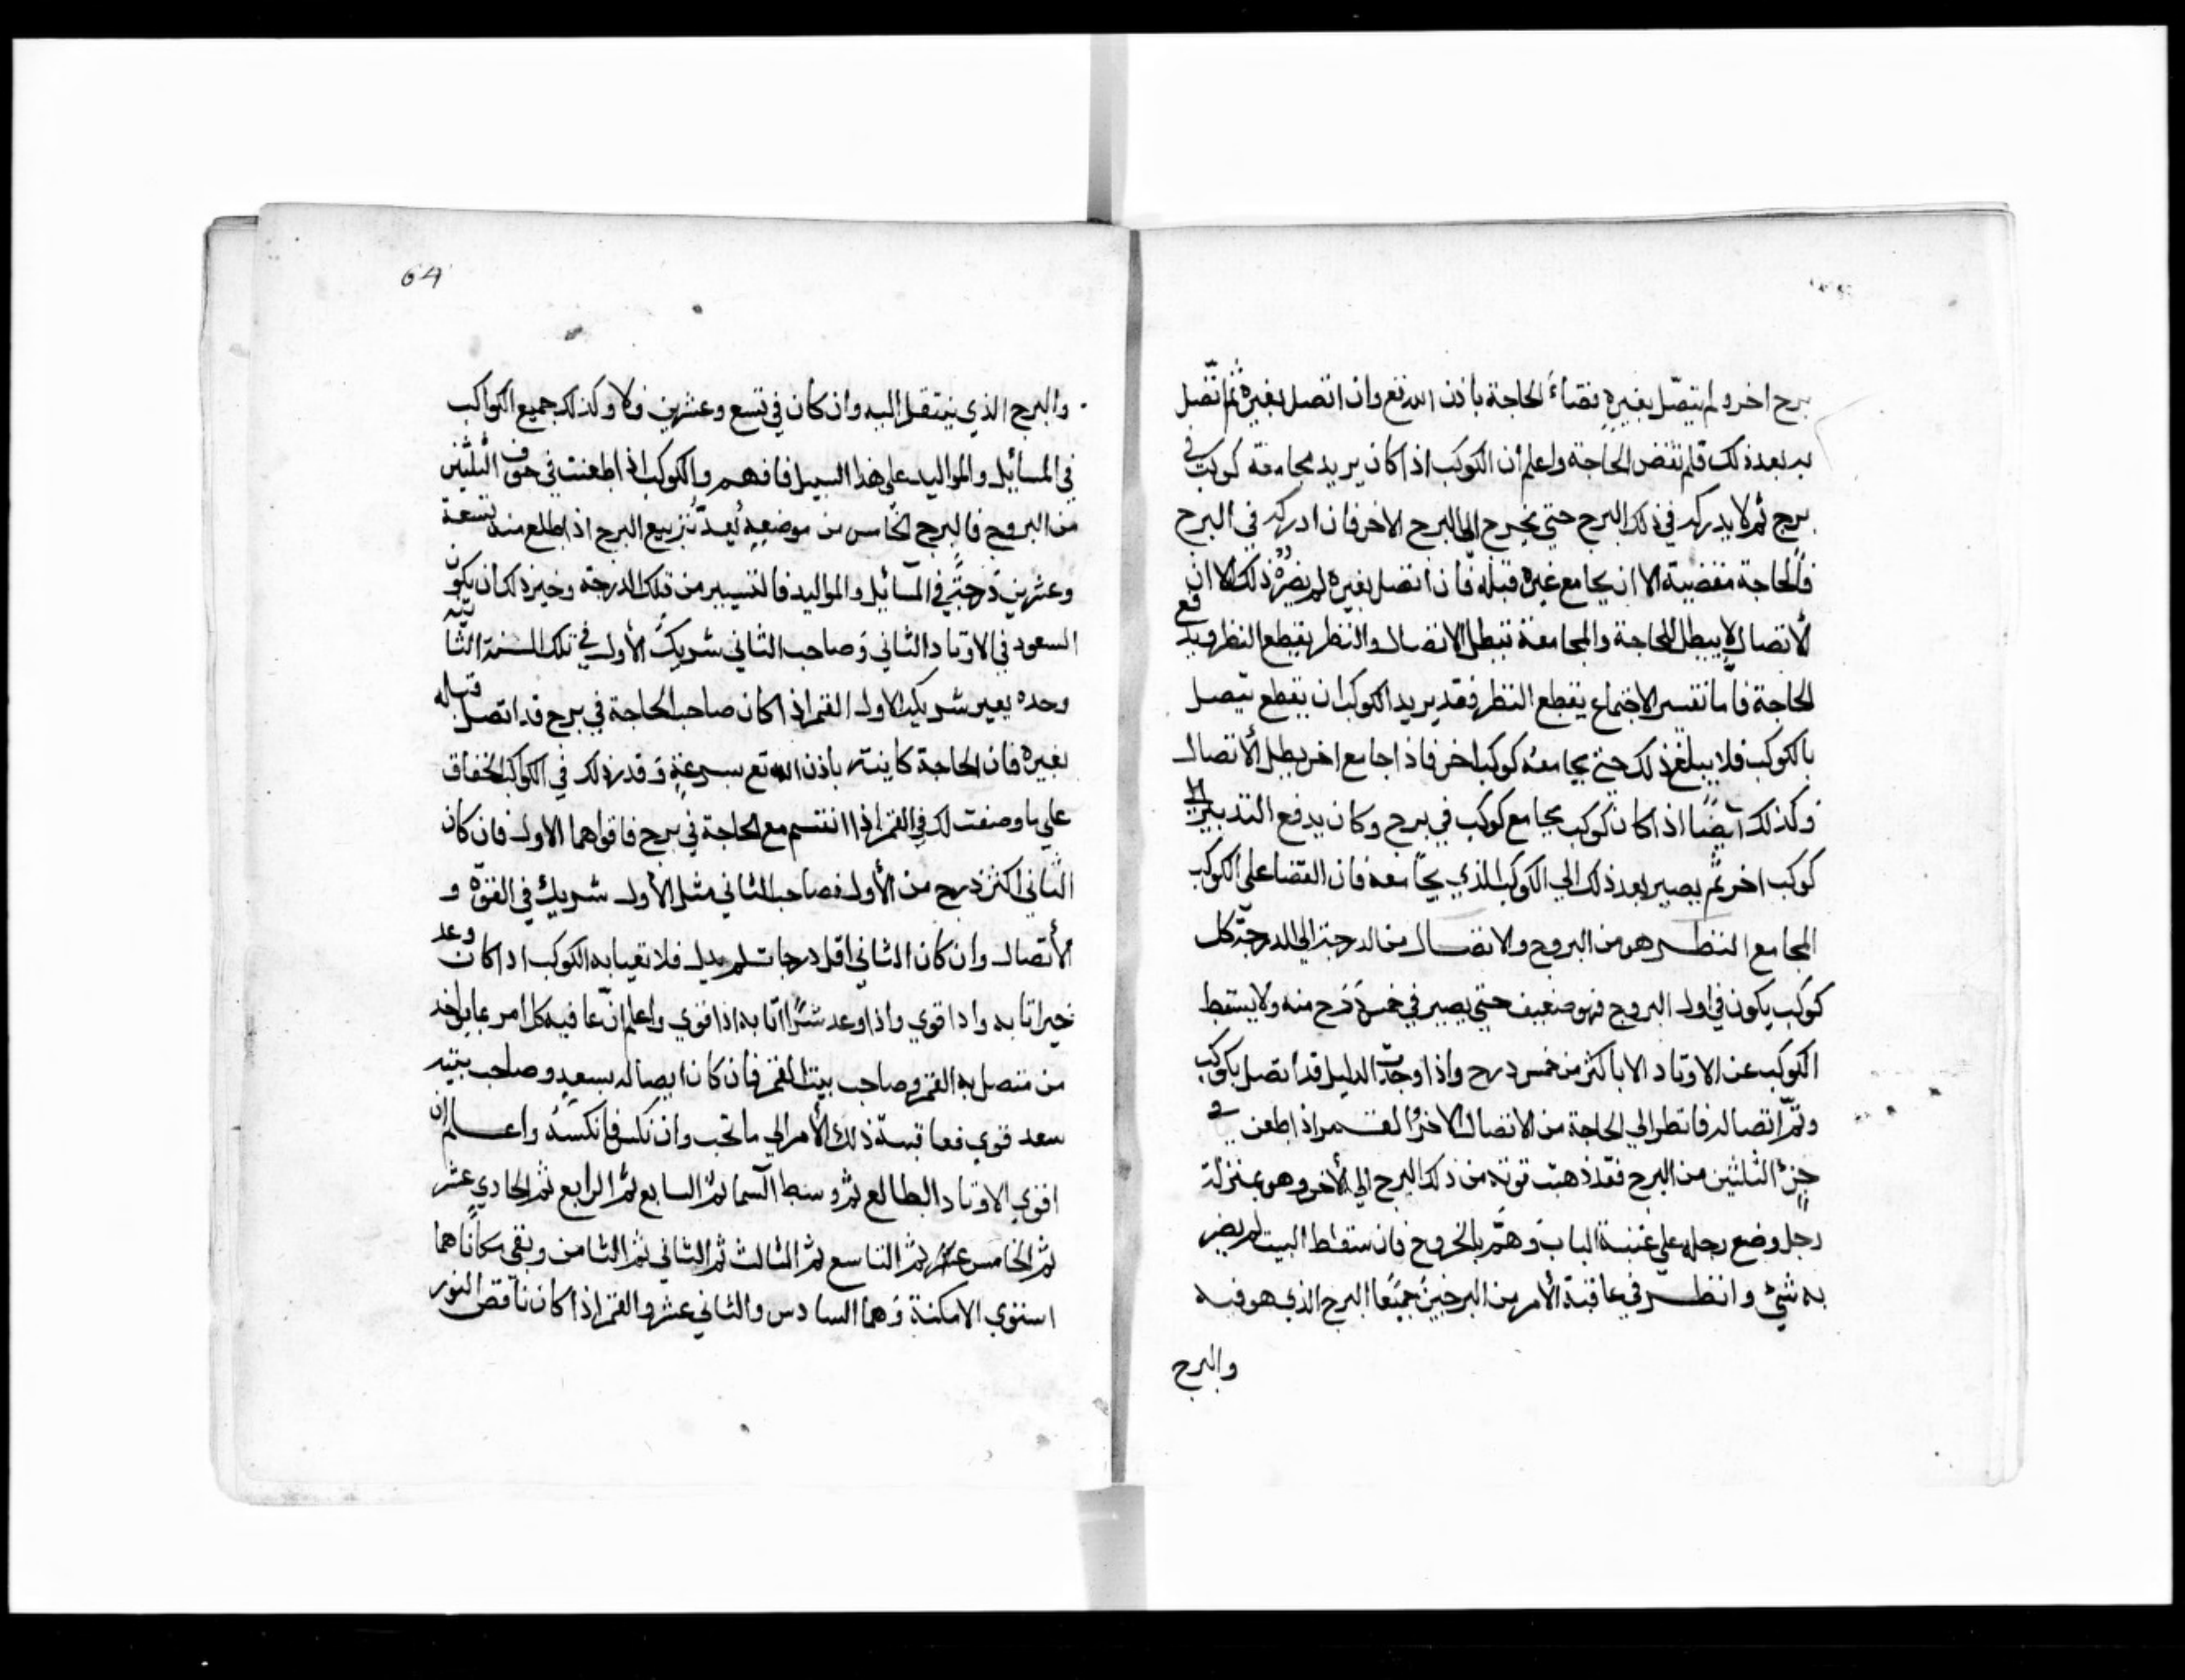 برج اخر ولم يتصّل بغيرهِ نقضاءَ الحاجة باذن الله تع وان اتصل بغيره ثمّ اتّصل
به بعد ذلك فلم تقض الحاجة واعلم أن الكوكب اذا كان يريد مجامعة كوكب في
برج ثم لا يدركه في ذلك البرج حتي يخرج الى البرح الاخر فان ادركه في البرح
فالحاجة مقضية الا ان يجامع غيره قبله فان اتصل بغيره لم يضرّهُ ذلك لا ان
لأتصال لا يبطل الحاجة والمجامعة تبطل الاتصال والنظر يقطع النظر فيدفع
الحاجة فأما تفسير الاجتماع يقطع النظر فقد يريد الكوكب ان يقطع يتصل
بالكوكب فلا يبلغ ذلك حتي يجامعهُ كوكب اخر فاذا جامع اخر بطل الأتصال
وكذلك أيضًا اذا كان كوكب يجامع كوكب في برج وكان يدفع التدبير الي
كوكب اخر ثم يصير بعد ذلك الي الكوكب الذي يجامعه فان القضا على الكوكب
المجامع النظر هو من البروح والاتصال من الدرجة الي الدرجة كل
كوكب يكون في اول البروج فهو ضعيف حتي يصير في خمس درح منه ولا يسقط
الكوكب عن الاوتاد الا باكثر من خمس درح واذا وجدت الدليل قد اتصل بكوكب
وتمّ اتصاله فانظر الي الحاجة من الاتصال الاخر والقمر اذا طعن في
جزءِ الثلثين من البرح فقد ذهبت قوته من ذلك البرح الي الأخر وهو بمنزلة
رجل وضع رجله علي عتبة الباب وَهمّ بالخروج فان سقط البيت لم يضر
به شيئ وانظر في عاقبة الأمر من البرجين جميعًا البرح الذي هو فيه
والبرح
64
والبرح الذي ينتقل اليه وان كان في تسع وعشرين فلا وكذلك جميع الكواكب
في المسائِل والمواليد على هذا السبيل فافهم والكوكب اذا طعنت في الثلثين
من البروج فالبرح الخامس من موضعهِ البرج اذا طلع منه تسعة
وعشرين دَرجةً في المسائِل والمواليد فالتسيير من تلك الدرجة وخير ذلك ان يكون
السعود في الاوتاد الثاني وَصاحب الثاني شريك الأول في تلك السنة الثانية
وحده يعير شريك الاول القمر اذا كان صاحب الحاجة في برح قد اتصل قبله
بغيره فان الحاجة كاينة باذن الله تع بسرعةٍ وقد ذلك في الكواكب الخفاف
علي ما وصفت لك في القمر اذا انقسم مع الحاجة في برح فاقواهما الاول فان كان
الثاني اكثر درح من الأول فصاحب الثاني مثل الأول شريك في القوّة و
الأتصال وان كان الثاني اقل درجات لم يدل فلا تعبا به الكوكب اذا كان وعد
خيرا تا به واذا قوي واذا وعد شرًّا اتا به اذا قوي واعلم انّ عافية كل امر
من متصل به القمر وصاحب بيت القمر فان كان ايصاله بسعد وصاحب بيته
سعد قوي فعاقبة ذلك الأمر الي ما تحب وان نكس فانكسهُ واعلم ان
اقوي الاوتاد الطالع ثم وسط السما ثم السابع ثم الرابع ثم الحادي عشر
ثم الخامس ثم التاسع ثم الثالث ثم الثاني ثم الثامن وبقي مكانًا هما
استوي الامكنة وَهما السادس والثاني عشر والقمر اذا كان ناقص النور